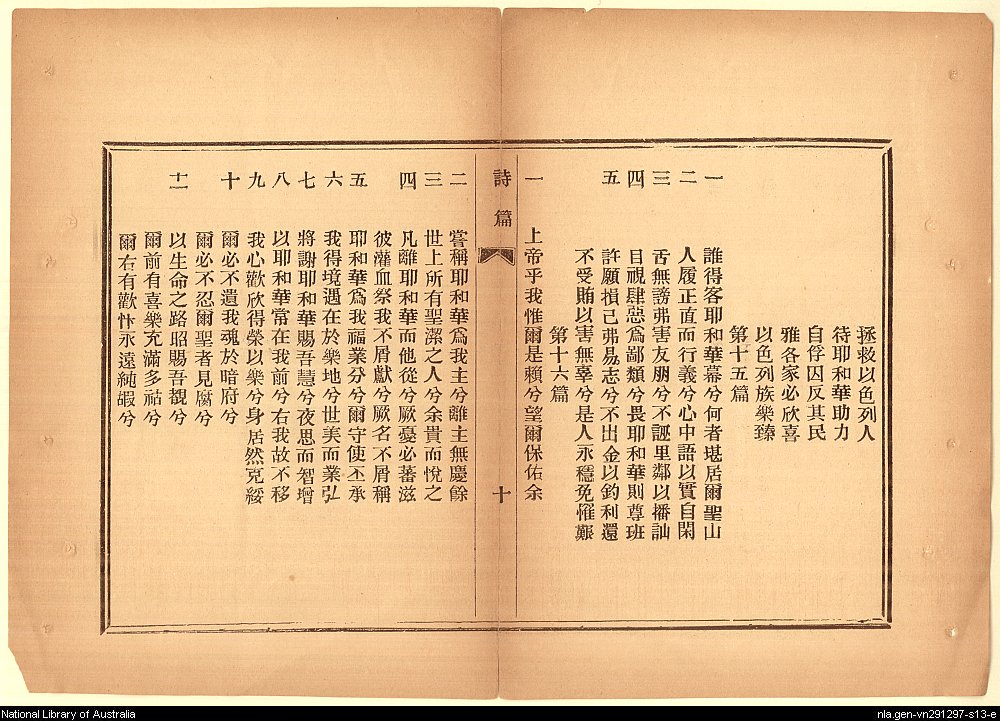 拯救以色列人
待耶和華助力
自俘囚反其民
雅各家必欣喜
以色列族樂臻
第十五篇
一 誰得客耶和華幕兮何者堪居爾聖山
二 人履正直而行義兮心中語以實自閑
三 舌無謗弗害友朋兮不誣里鄰以播訕
四 目視肆惡爲鄙類兮畏耶和華則尊班
五 許願損己弗易志兮不出金以釣利還
不受賄以害無辜兮是人永穩免罹艱
第十六篇
一 上帝乎我惟爾是賴兮望爾保佑余
詩篇 十
二 嘗稱耶和華爲我主兮離主無慶餘
三 世上所有聖潔之人兮余貴而悅之
四 凡離耶和華而他從兮厥憂必蕃滋
彼灌血祭我不屑獻兮厥名不屑稱
五 耶和華爲我福業分兮爾守使丕承
六 我得境遇在於樂地兮世美而業弘
七 將謝耶和華賜吾慧兮夜思而智增
八 以耶和華常在我前兮右我故不移
九 我心歡欣得榮以樂兮身居然克綏
十 爾必不遺我魂於暗府兮
爾必不忍爾聖者見腐兮
十一 以生命之路昭賜吾覩兮
爾前有喜樂充滿多祜兮
爾右有歡忭永遠純嘏兮
National Library of Australia
nla.gen-vn291297-s13-e